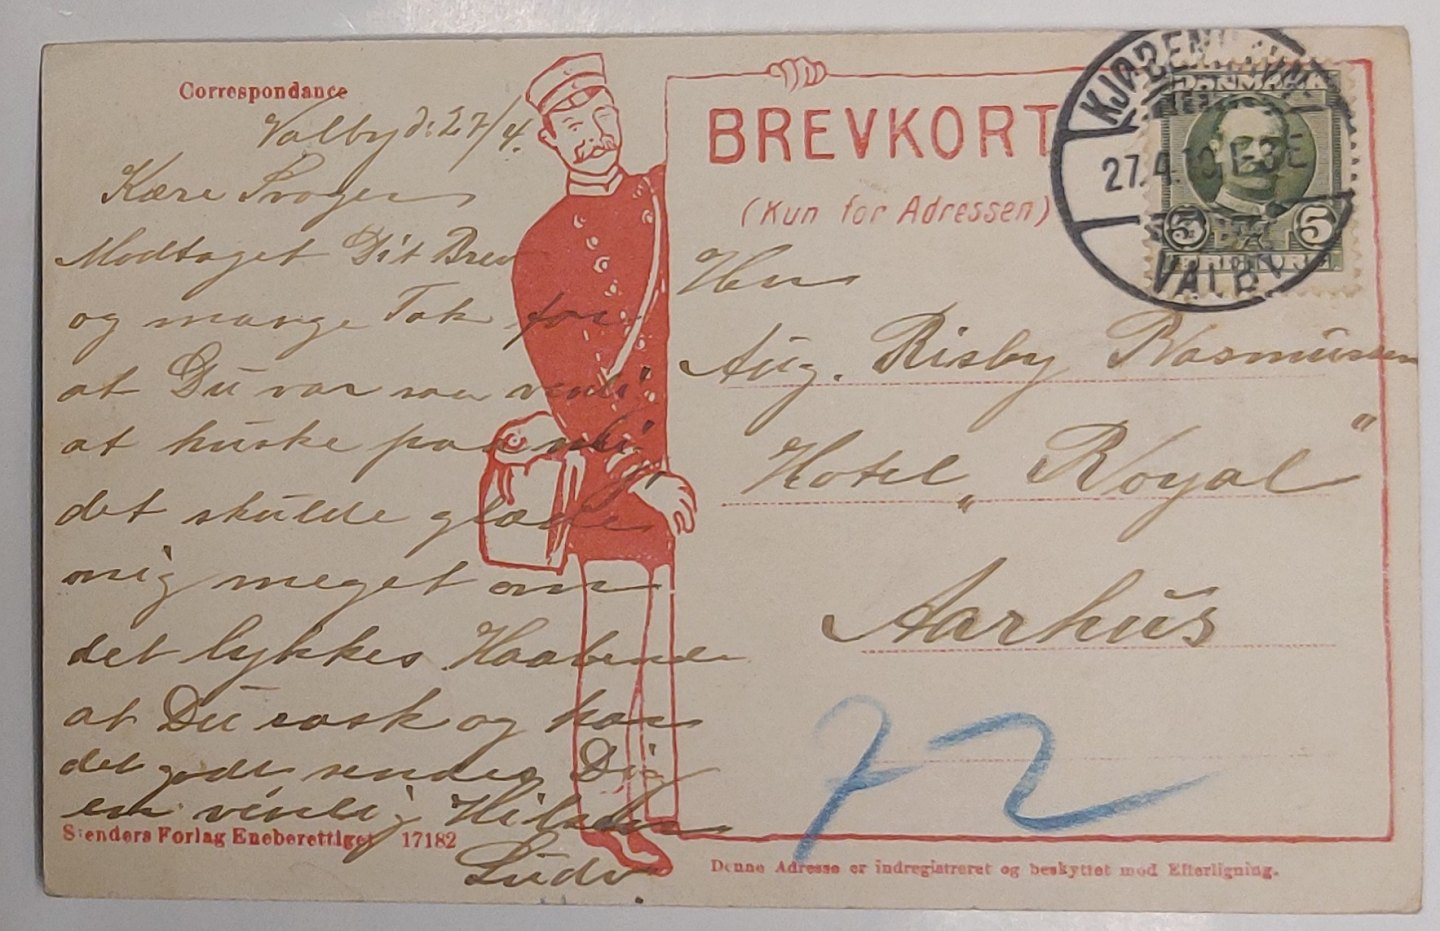 Correspondance
Valby d: 27/4.
Kære Svoger
Modtaget Dit Brev
og mange Tak for
at Du var saa venlig
at huske paa mig,
det skulde glæde
mig meget om
det lykkes. Haabende
at Du rask og har
det godt sendes Dig
en venlig Hilsen
Ludv.
Stenders Forlag Eneberettiget 17182
BREVKORT
(Kun for Adressen)
KJØBENHAVN
27.4.10
VALBY
DANMARK
5 5
Hrr
Aug. Risby Rasmussen
Hotel „Royal"
Aarhus
72
Denne Adresse er indregistreret og beskyttet mod Efterligning.